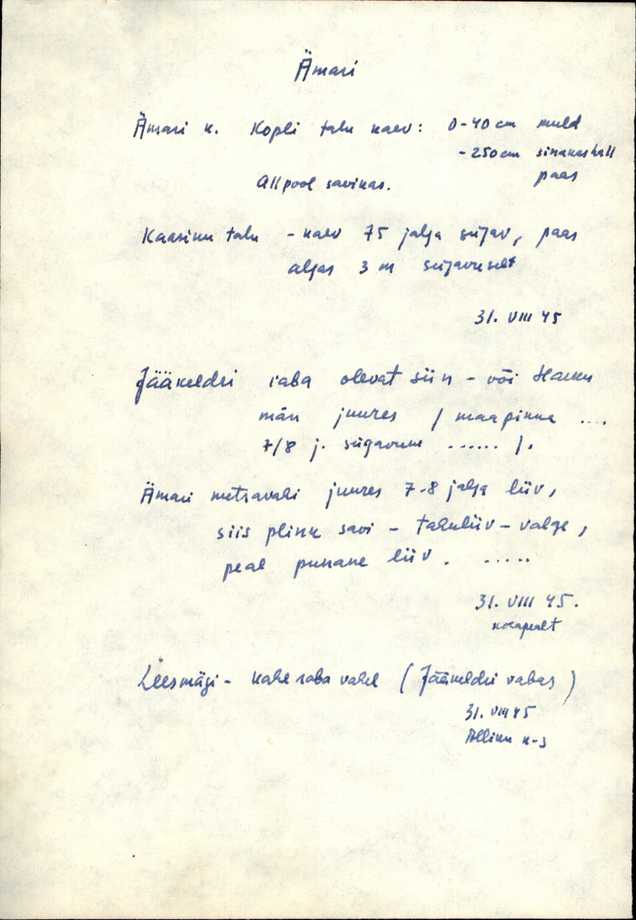 Ämari
Ämari k. Kopli talu kaev: 0-40 cm muld
- 250 cm sinakashall
paas
Allpool savikas.
Kaasiku talu - kaev 75 jalga sügav, paas
algas 3 m sügavuselt
31. VIII 45
Jääkeldri raba olevat siin - või Harku
män juures / maapinna ....
7/8 j. sügavune ...... /.
Ämari metsavahi juures 7-8 jalga liiv,
siis plink savi - tahuliiv - valge,
peal punane liiv. .....
31. VIII 45.
kohapealt
Leesmägi - kahe raba vahel (Jääkeldri rabas)
31. VIII 45
k-s